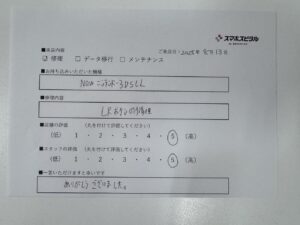 スマホスピタル
ご来店日：2025年8月13日
■来店内容
☑ 修理 □ データ移行 □ メンテナンス
■お持ち込みいただいた機種
New ニンテンドー3DSLL
■修理内容
LRボタンの修理
■店舗の評価 (丸を付けて評価してください)
(低) 1 ・ 2 ・ 3 ・ 4 ・ 5 (高)
■スタッフの評価 (丸を付けて評価してください)
(低) 1 ・ 2 ・ 3 ・ 4 ・ 5 (高)
■一言いただけますと幸いです
ありがとうございました。